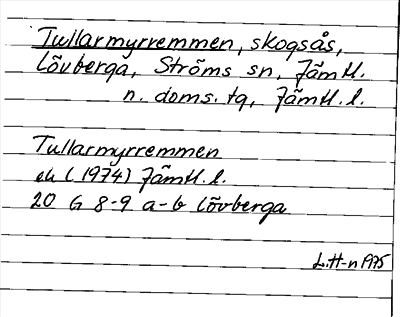 Tullarmyrremmen, skogsås,
Lövberga, Ströms sn, Jämtl.
n. doms. tg, Jämtl. l.
Tullarmyrremmen
ek (1974) Jämtl. l.
20 G 8-9 a-b Lövberga
L.H-n 1975